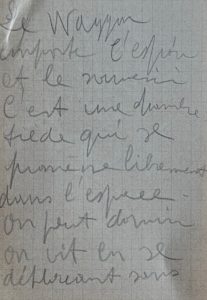 Le Waggon
emporte l'espoir
et le souvenir
C'est une chambre
tiède qui se
promène librement
dans l'espace -
on peut dormir
on vit en se
déplaçant sans